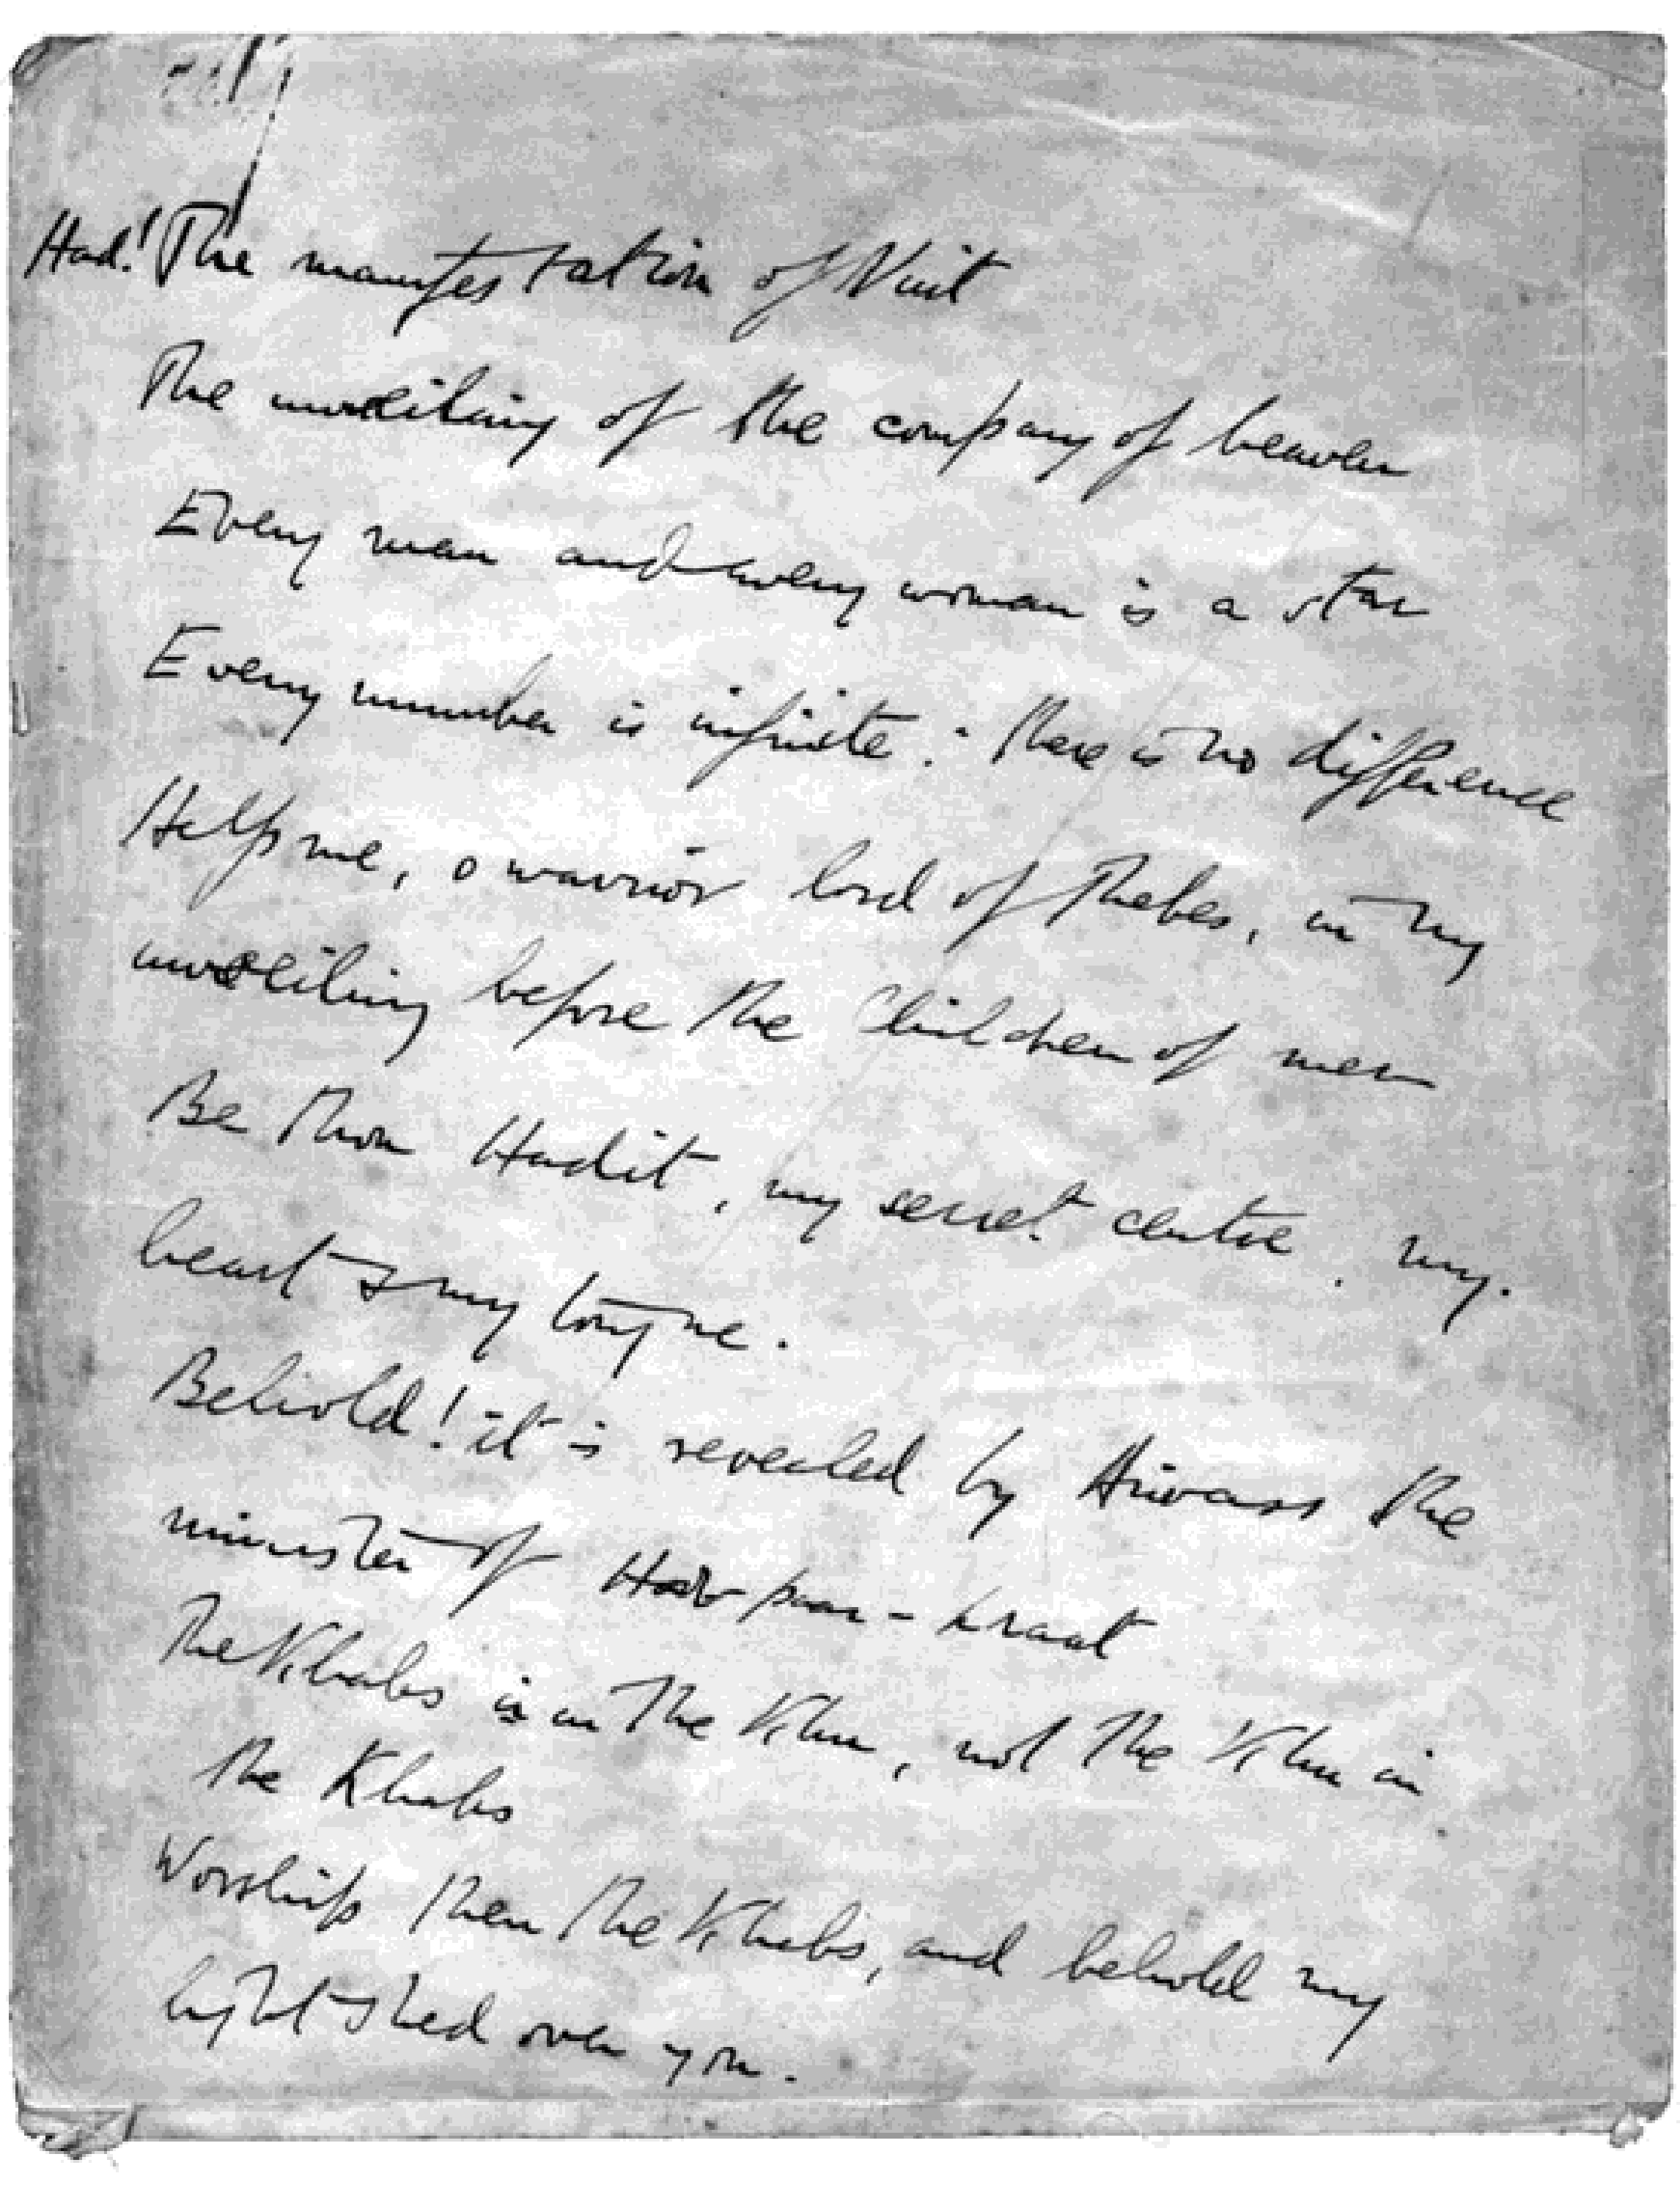 Had! The manifestation of Nuit
The unveiling of the company of heaven
Every man and every woman is a star
Every number is infinite : there is no difference
Help me, o warrior lord of Thebes, in my
unveiling before the Children of men
Be thou Hadit, my secret centre, my
heart & my tongue.
Behold! it is revealed by Aiwass the
minister of Hoor-paar-kraat
The Khabs is in the Khu, not the Khu in
the Khabs
Worship then the Khabs, and behold my
light shed over you.